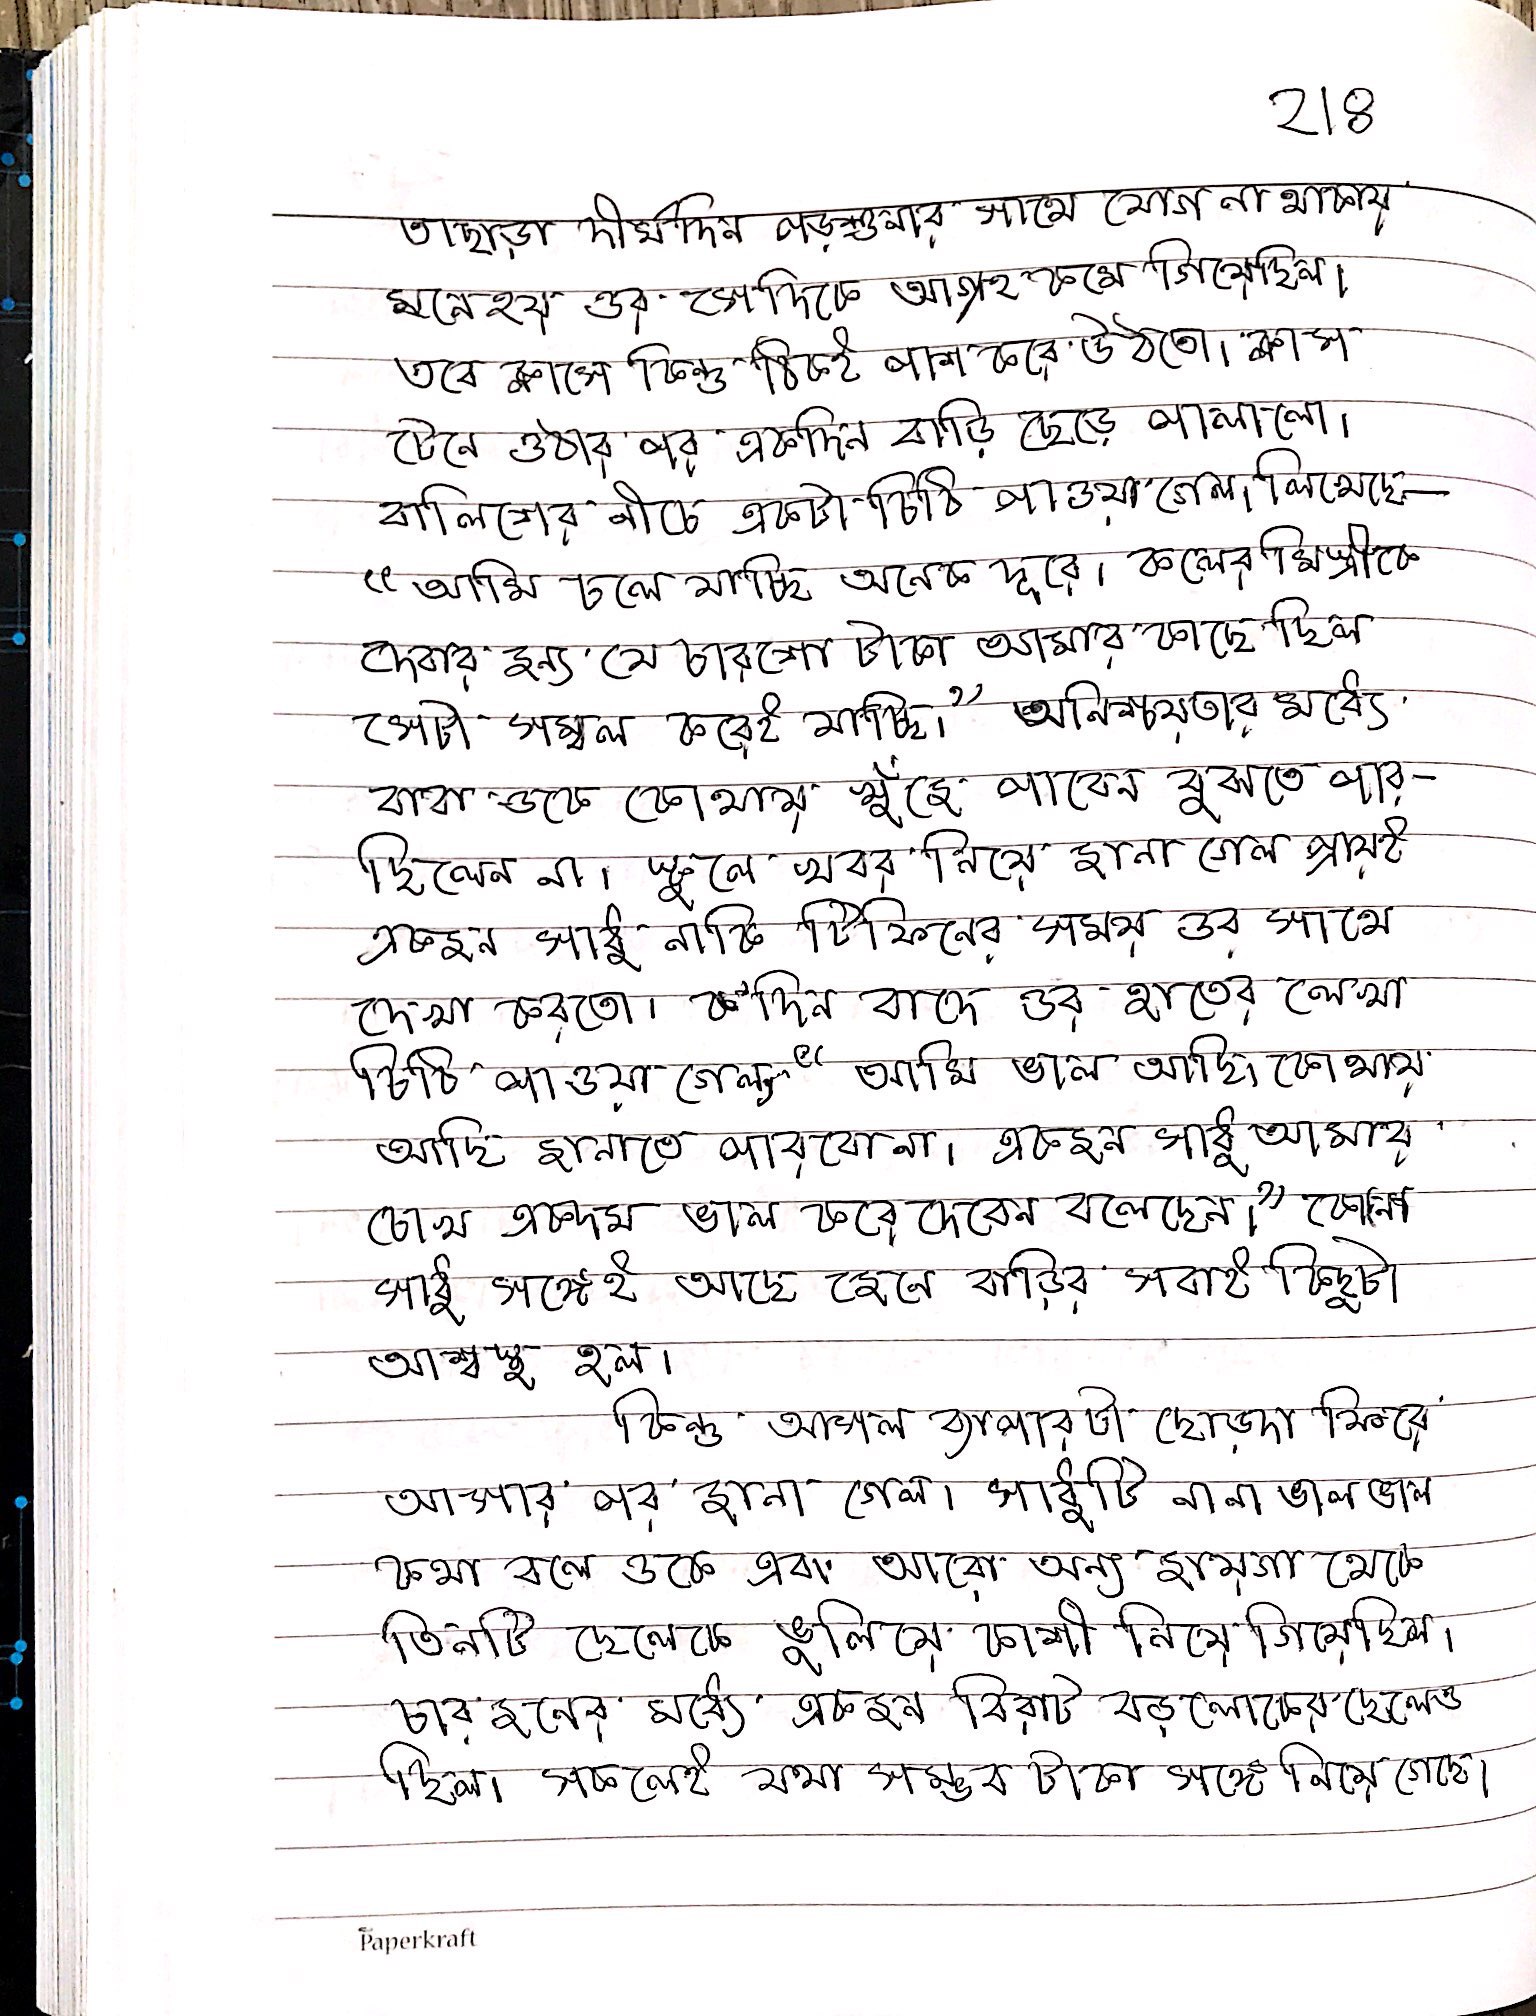 218
তাছাড়া দীর্ঘদিন পড়াশুনার সাথে যোগ না থাকায়
মনে হয় ওর সেদিকে আগ্রহ কমে গিয়েছিল।
তবে ক্লাসে কিন্তু ঠিকই পাশ করে উঠতো। ক্লাস
টেনে ওঠার পর একদিন বাড়ি ছেড়ে পালালো।
বালিশের নীচে একটা চিঠি পাওয়া গেল। লিখেছে—
“আমি চলে যাচ্ছি অনেক দূরে। কলের মিস্ত্রীকে
দেবার জন্য যে চারশো টাকা আমার কাছে ছিল
সেটা সম্বল করেই যাচ্ছি।” অনিশ্চয়তার মধ্যে
বাবা ওকে কোথায় খুঁজে পাবেন বুঝতে পার-
ছিলেন না। স্কুলে খবর নিয়ে জানা গেল প্রায়ই
একজন সাধু নাকি টিফিনের সময় ওর সাথে
দেখা করতো। ক'দিন বাদে ওর হাতের লেখা
চিঠি পাওয়া গেল, “আমি ভাল আছি, কোথায়
আছি জানাতে পারবো না। একজন সাধু আমার
চোখ একদম ভাল করে দেবেন বলেছেন।” কোন
সাধু সঙ্গেই আছে জেনে বাড়ির সবাই কিছুটা
আশ্বস্থ হল।
কিন্তু আসল ব্যাপারটা ছোড়দা ফিরে
আসার পর জানা গেল। সাধুটি নানা ভাল ভাল
কথা বলে ওকে এবং আরো অন্য জায়গা থেকে
তিনটি ছেলেকে ভুলিয়ে কাশী নিয়ে গিয়েছিল।
চার জনের মধ্যে একজন বিরাট বড়লোকের ছেলেও
ছিল। সকলেই যথা সম্ভব টাকা সঙ্গে নিয়ে গেছে।
Paperkraft